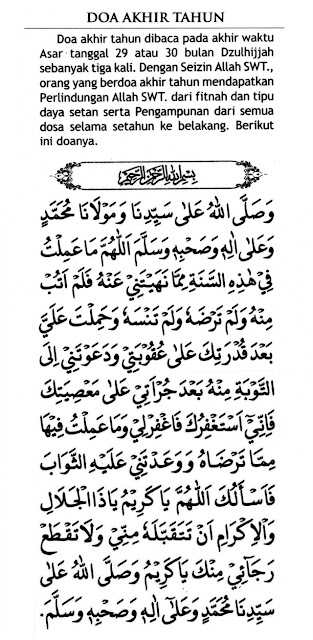 DOA AKHIR TAHUN
Doa akhir tahun dibaca pada akhir waktu
Asar tanggal 29 atau 30 bulan Dzulhijjah
sebanyak tiga kali. Dengan Seizin Allah SWT.,
orang yang berdoa akhir tahun mendapatkan
Perlindungan Allah SWT. dari fitnah dan tipu
daya setan serta Pengampunan dari semua
dosa selama setahun ke belakang. Berikut
ini doanya.
بِسْمِ اللهِ الرَّحْمٰنِ الرَّحِيْمِ
وَصَلَّى اللهُ عَلٰى سَيِّدِنَا وَمَوْلَانَا مُحَمَّدٍ
وَعَلٰى اٰلِهٖ وَصَحْبِهٖ وَسَلَّمَ اَللّٰهُمَّ مَا عَمِلْتُ
فِيْ هٰذِهِ السَّنَةِ مِمَّا نَهَيْتَنِيْ عَنْهُ فَلَمْ اَتُبْ
مِنْهُ وَلَمْ تَرْضَهُ وَلَمْ تَنْسَهُ وَحَمِلْتَ عَلَيَّ
بَعْدَ قُدْرَتِكَ عَلٰى عُقُوْبَتِيْ وَدَعَوْتَنِيْ اِلَى
التَّوْبَةِ مِنْهُ بَعْدَ جُرْاَتِيْ عَلٰى مَعْصِيَتِكَ
فَاِنِّيْ اَسْتَغْفِرُكَ فَاغْفِرْلِيْ وَمَا عَمِلْتُ فِيْهَا
مِمَّا تَرْضَاهُ وَوَعَدْتَنِيْ عَلَيْهِ الثَّوَابَ
فَاَسْأَلُكَ اَللّٰهُمَّ يَاكَرِيْمُ يَاذَا الْجَلَالِ
وَالْاِكْرَامِ اَنْ تَتَقَبَّلَهُ مِنِّيْ وَلَا تَقْطَعْ
رَجَآئِيْ مِنْكَ يَاكَرِيْمُ وَصَلَّى اللهُ عَلٰى
سَيِّدِنَا مُحَمَّدٍ وَعَلٰى اٰلِهٖ وَصَحْبِهٖ وَسَلَّمَ.